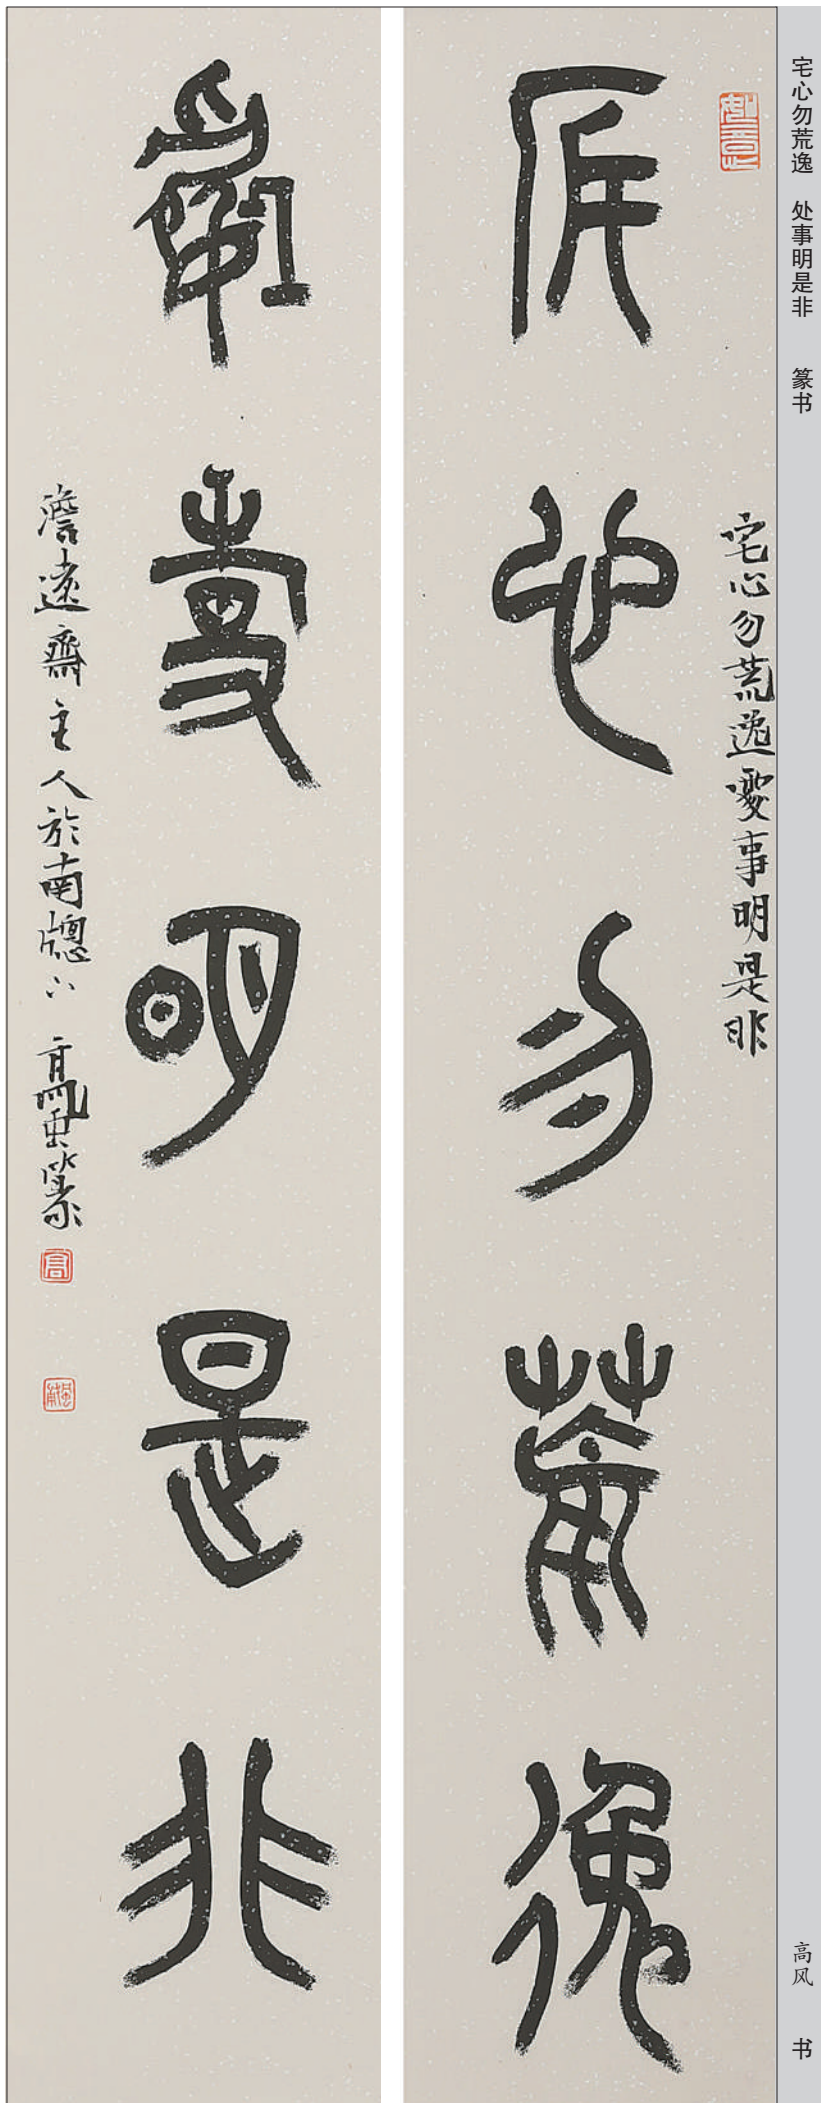 宅心勿荒逸 处事明是非 篆书
高风 书
宅心勿荒逸
宅心勿荒逸處事明是非
處事明是非
澹遠齋主人於南窗下 高風篆